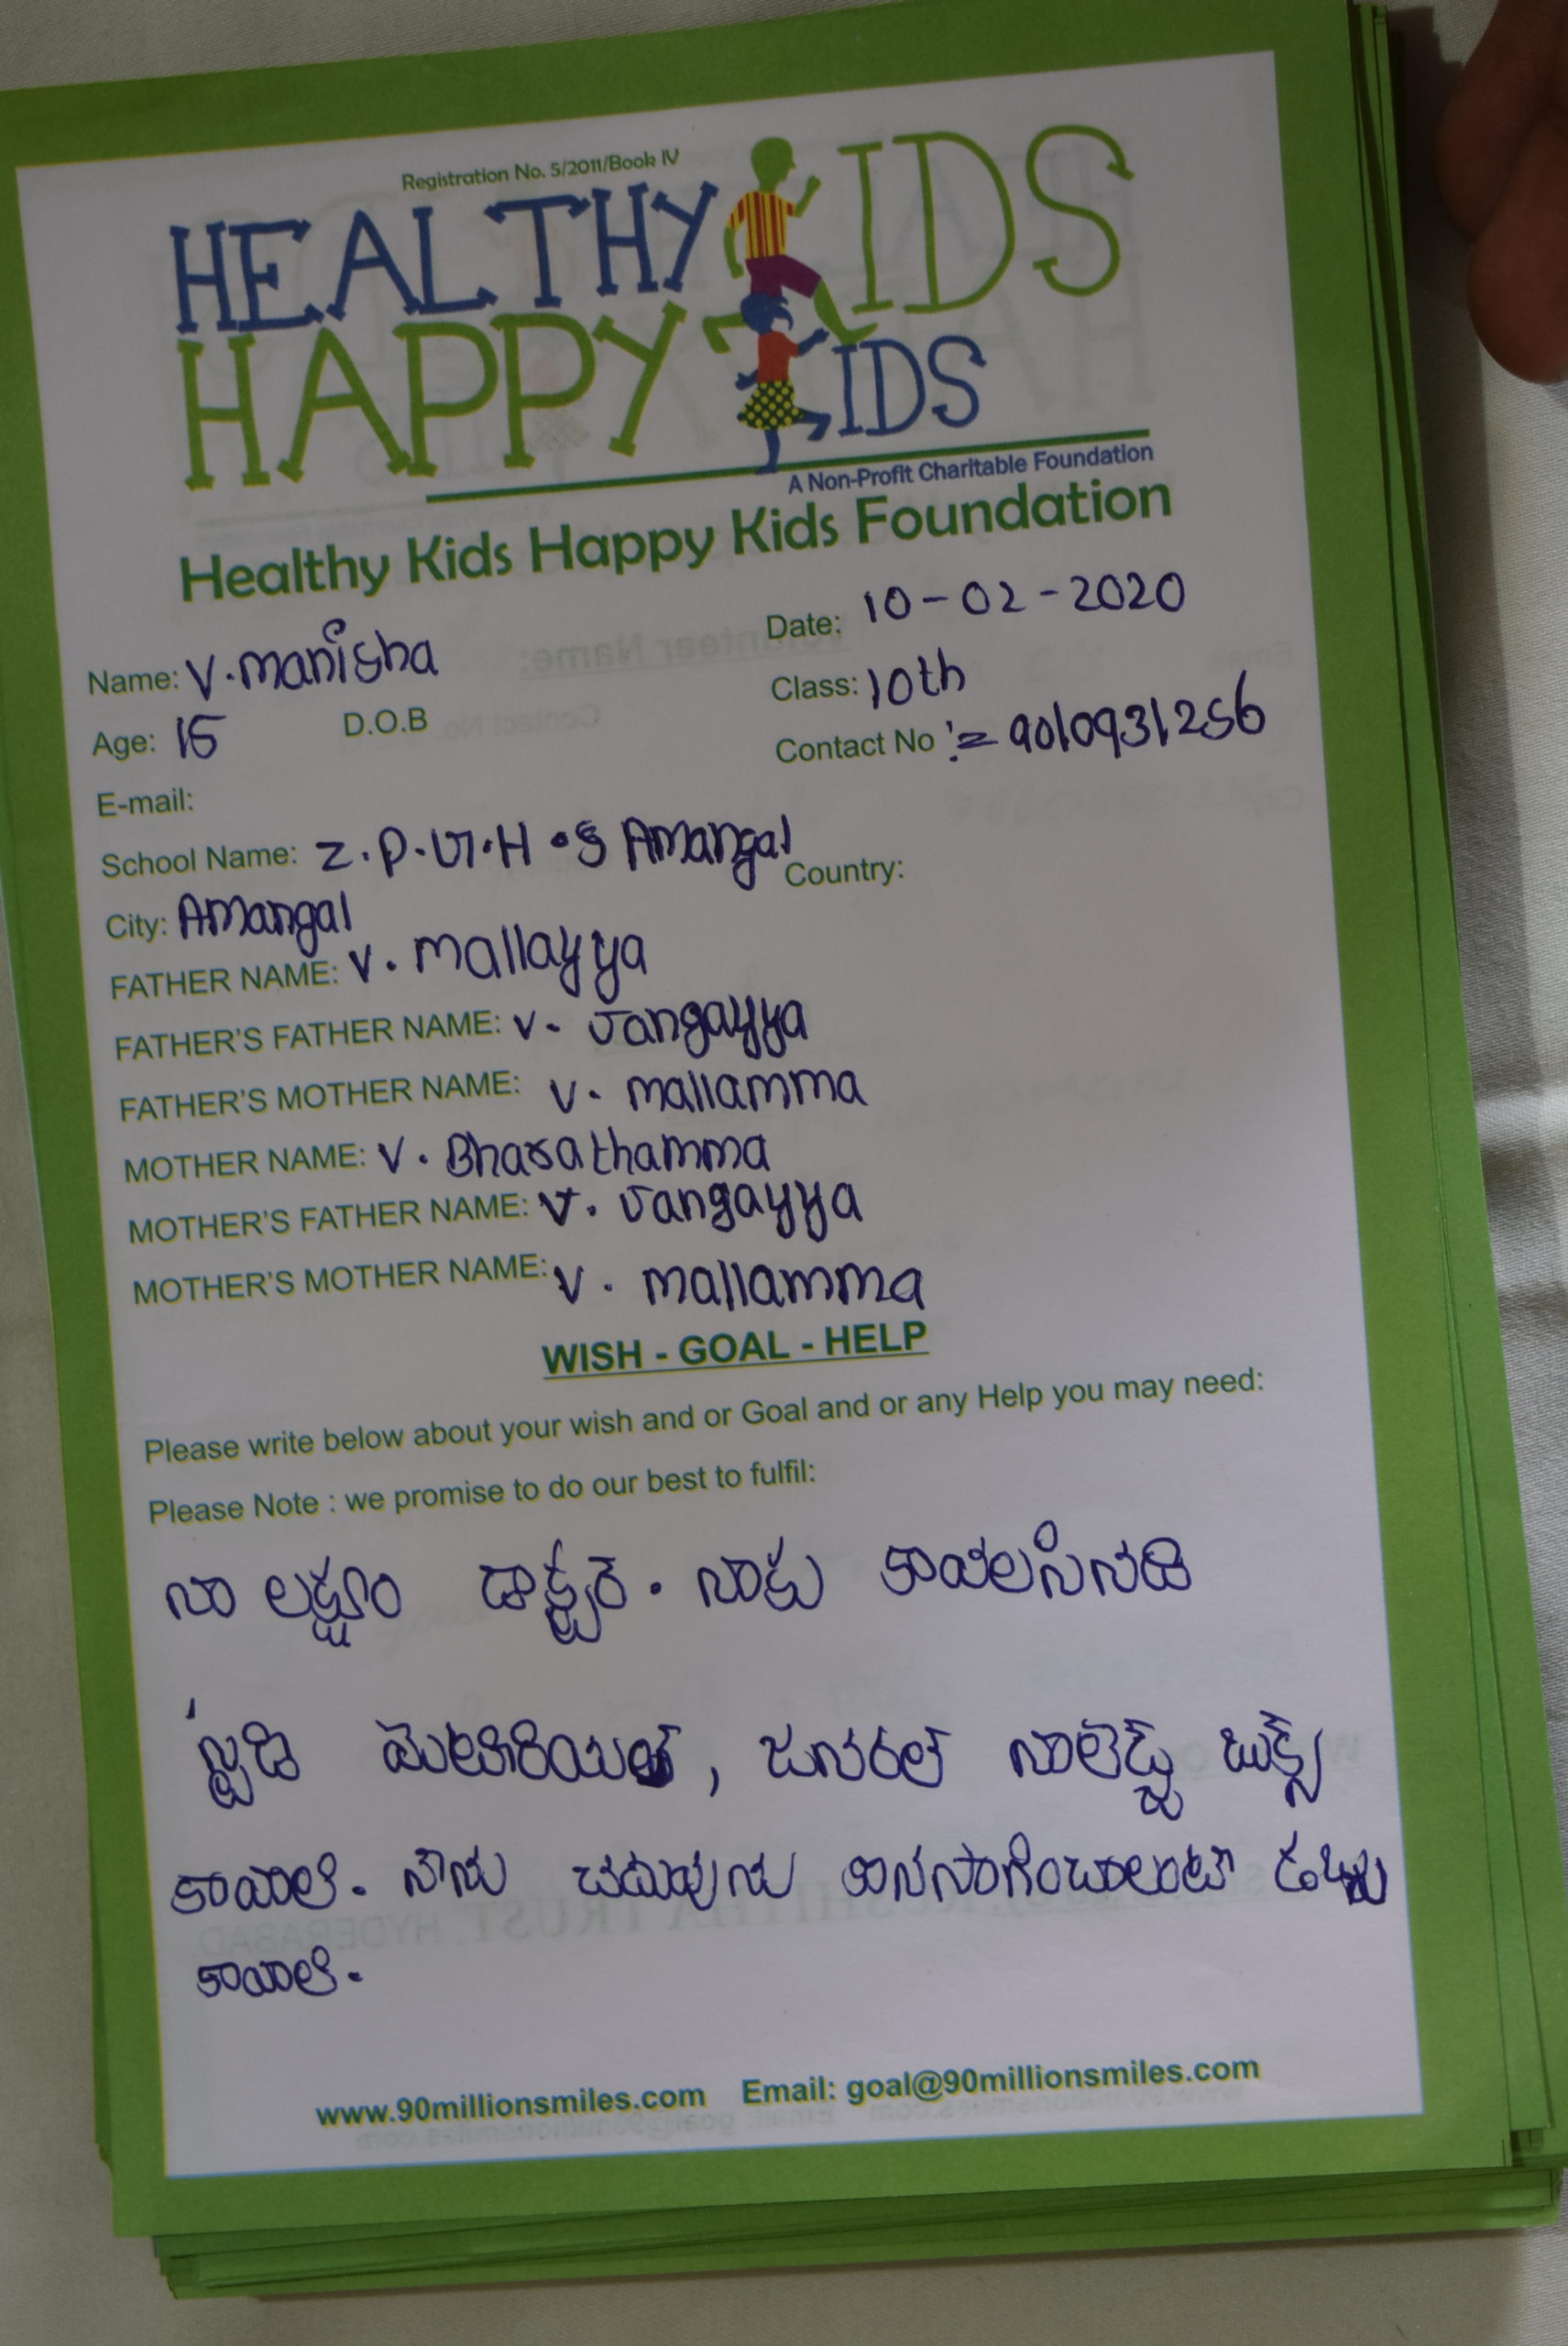 Registration No. 5/2011/Book IV
HEALTHY KIDS
HAPPY KIDS
A Non-Profit Charitable Foundation
Healthy Kids Happy Kids Foundation
Name: V. manisha Date: 10-02-2020
Age: 15 D.O.B Class: 10th
Contact No := 9010931256
E-mail:
School Name: Z.P.G.H.S Amangal Country:
City: Amangal
FATHER NAME: V. mallayya
FATHER'S FATHER NAME: V. Jangayya
FATHER'S MOTHER NAME: V. mallamma
MOTHER NAME: V. Bharathamma
MOTHER'S FATHER NAME: V. Jangayya
MOTHER'S MOTHER NAME: V. mallamma
WISH - GOAL - HELP
Please write below about your wish and or Goal and or any Help you may need:
Please Note : we promise to do our best to fulfil:
నా లక్ష్యం డాక్టర్. నాకు కావలసినది
స్టడి మెటీరియల్, జనరల్ నాలెడ్జ్ బుక్స్
కావాలి. నేను చదువును కొనసాగించాలంటే డబ్బు
కావాలి.
www.90millionsmiles.com Email: goal@90millionsmiles.com